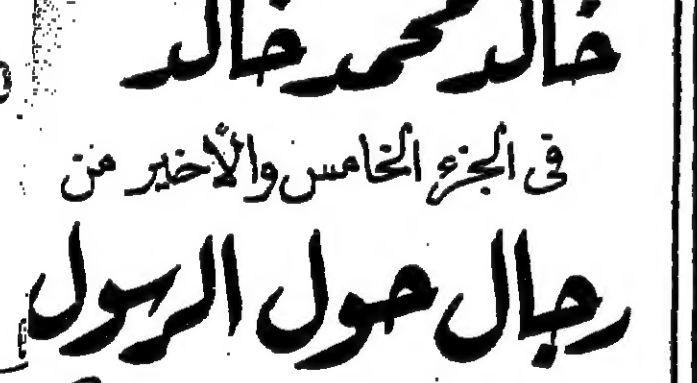 خالد محمد خالد
فى الجزء الخامس والأخير من
رجال حول الرسول